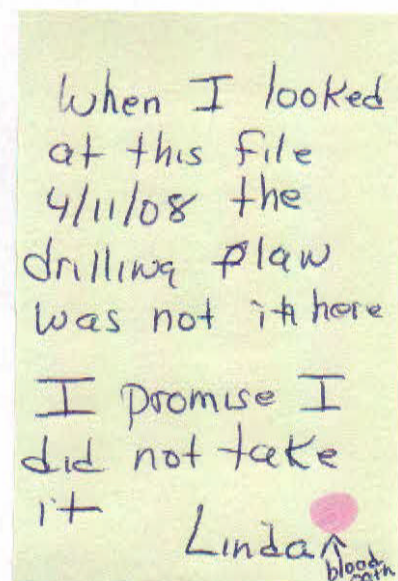 When I looked
at this file
4/11/08 the
drilling plan
was not in here
I promise I
did not take
it
Linda
blood
oath